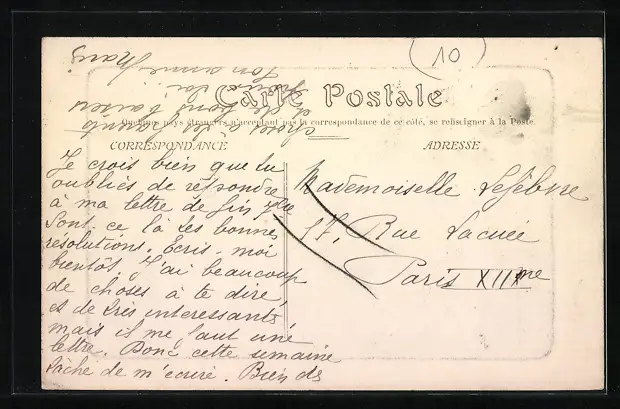 10
Carte Postale
Quelques pays étrangers n'acceptant pas la correspondance de ce côté, se renseigner à la Poste.
CORRESPONDANCE
ADRESSE
Je crois bien que tu
oublies de répondre
à ma lettre de fin
Sont ce là tes bonnes
résolutions. Ecris-moi
bientôt. J'ai beaucoup
de choses à te dire,
et de très interessants
mais il me faut une
lettre. Donc cette semaine
tâche de m'écrire. Bien des
choses à tes parents
de bons baisers
pour toi
Ton amie
Mademoiselle Lefèbvre
Rue Lacuée
Paris XIIme